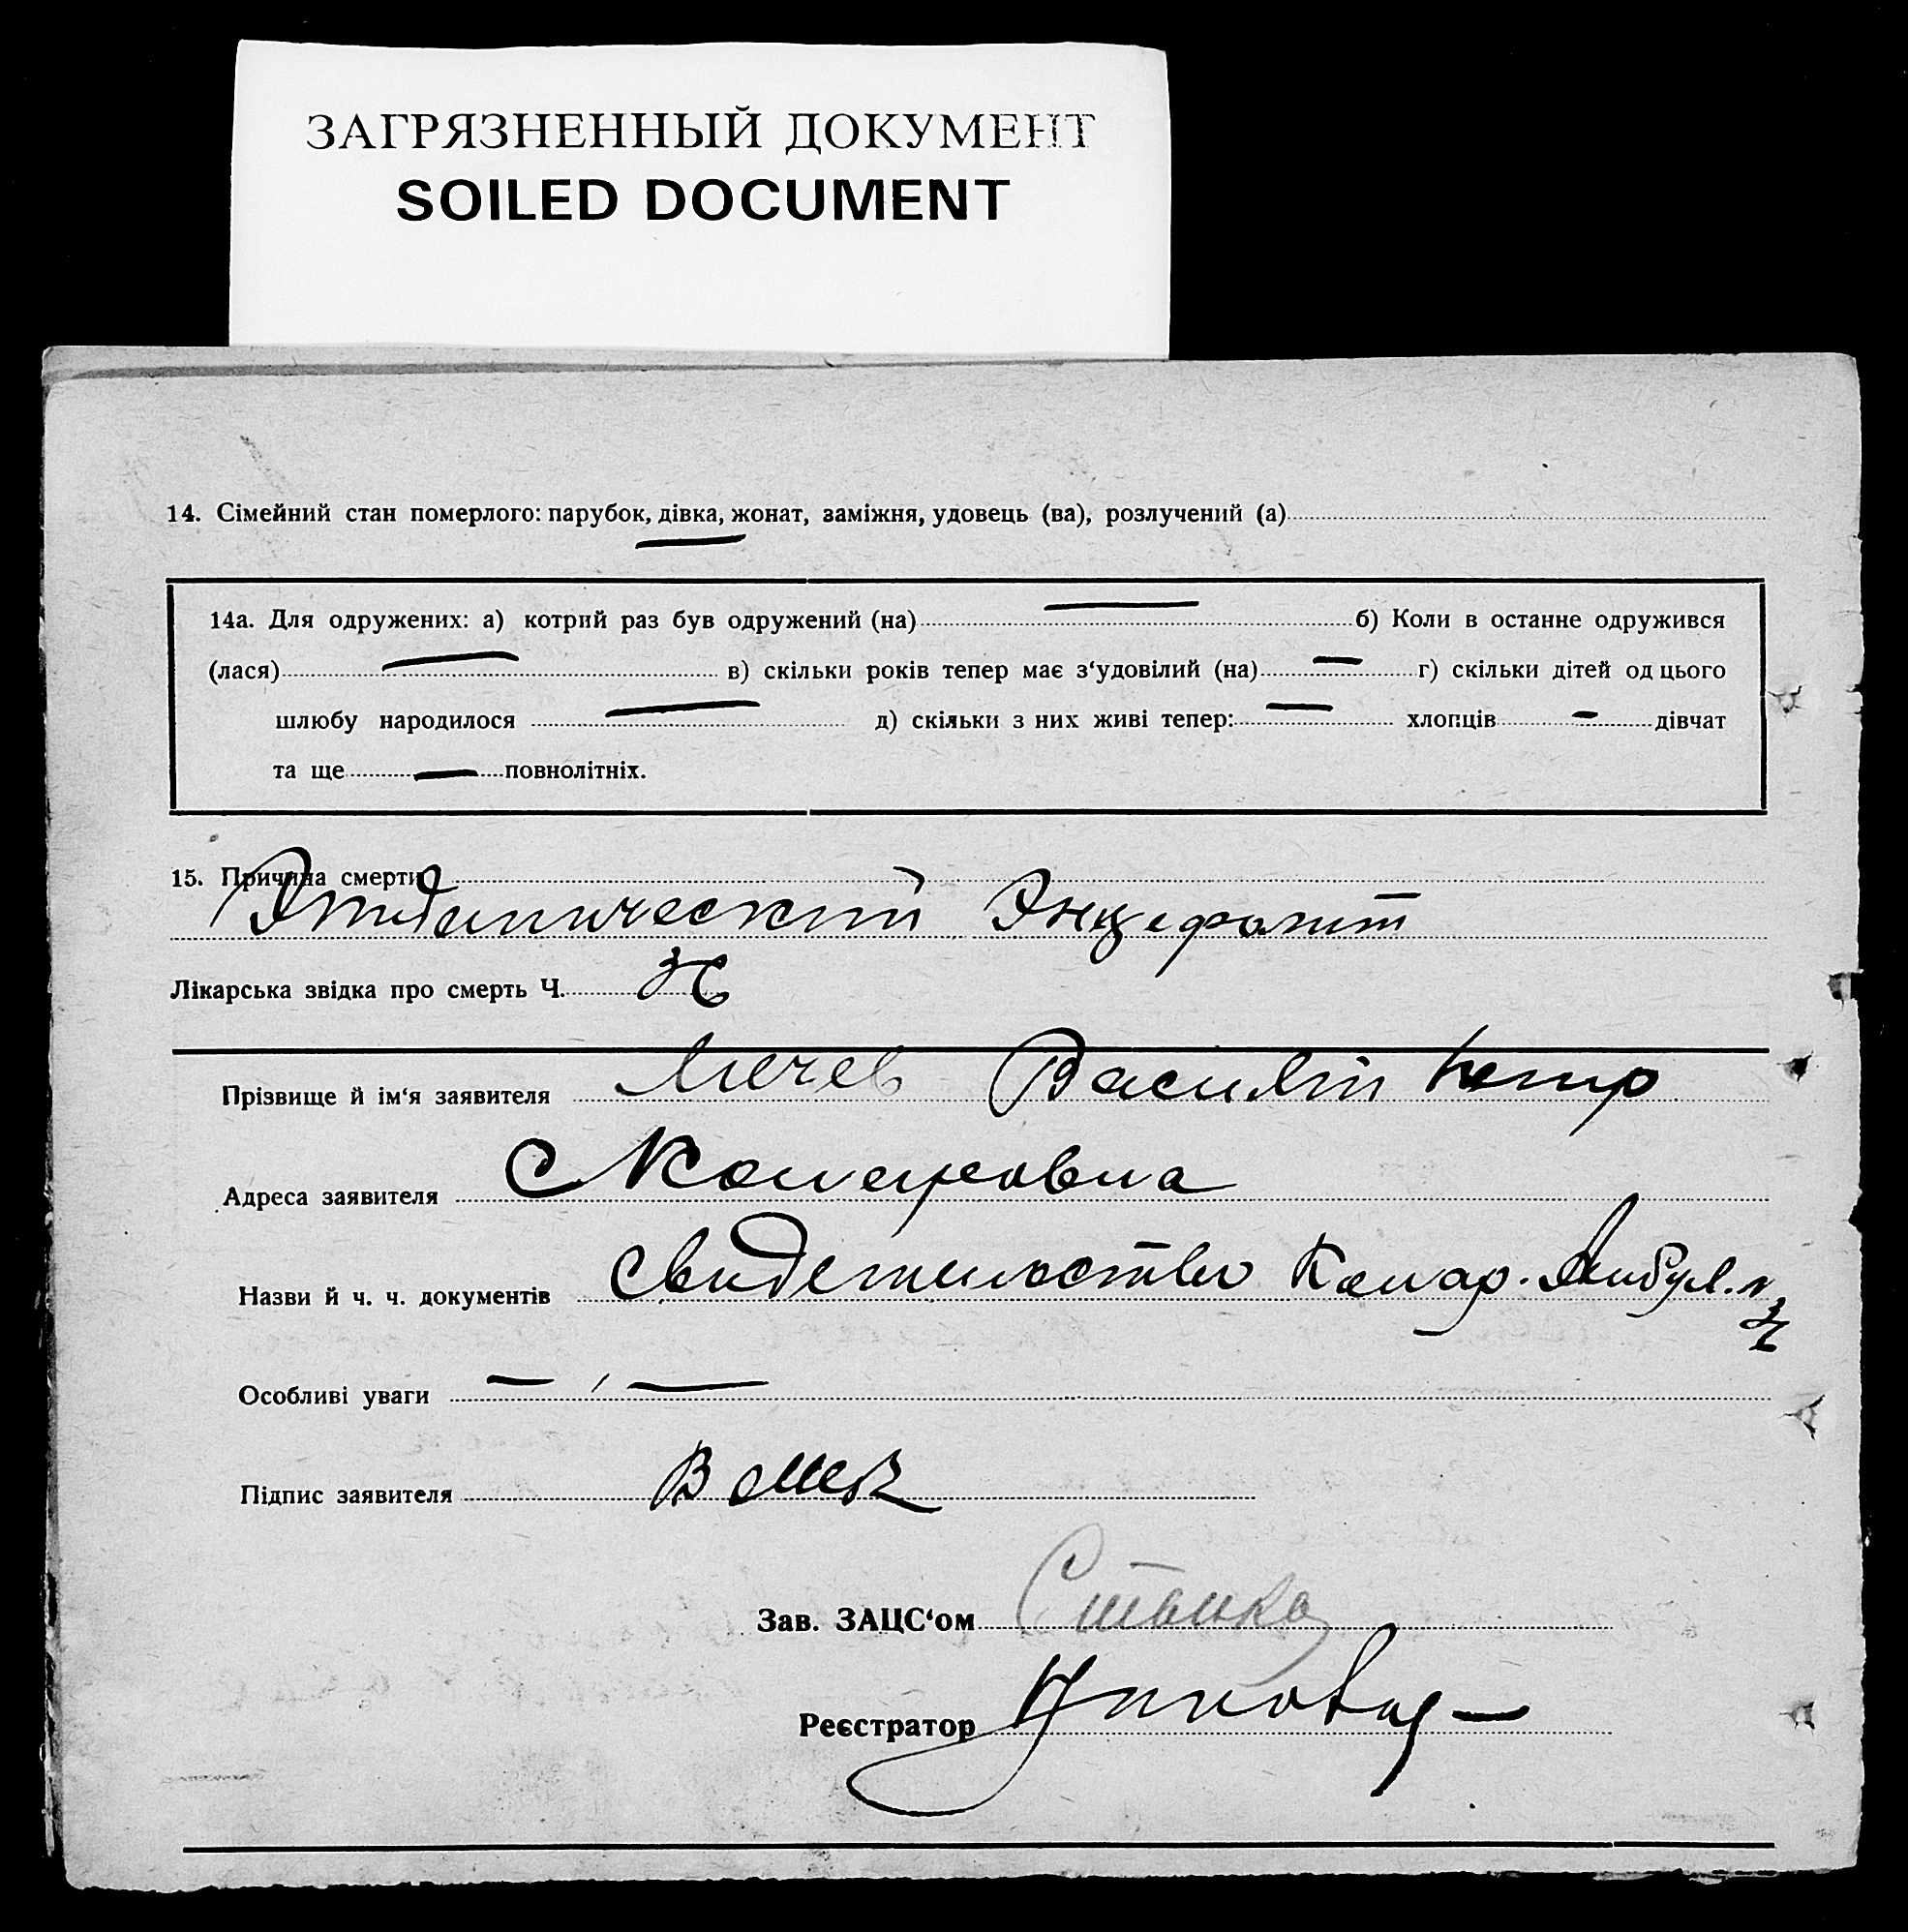 ЗАГРЯЗНЕННЫЙ ДОКУМЕНТ
SOILED DOCUMENT
14. Сімейний стан померлого: парубок, дівка, жонат, заміжня, удовець (ва), розлучений (а)
14а. Для одружених: а) котрий раз був одружений (на) б) Коли в останнє одружився
(лася) в) скільки років тепер має з‘удовілий (на) г) скільки дітей од цього
шлюбу народилося д) скільки з них живі тепер: хлопців дівчат
та ще повнолітніх.
15. Причина смерти
Эпидемический Энцефалит
Лікарська звідка про смерть Ч.
Прізвище й ім‘я заявителя Василий Петр
Адреса заявителя С Комаровка
Назви й ч. ч. документів Свидетельство Комар. Амбул.
Особливі уваги
Підпис заявителя
Зав. ЗАЦС‘ом
Реєстратор